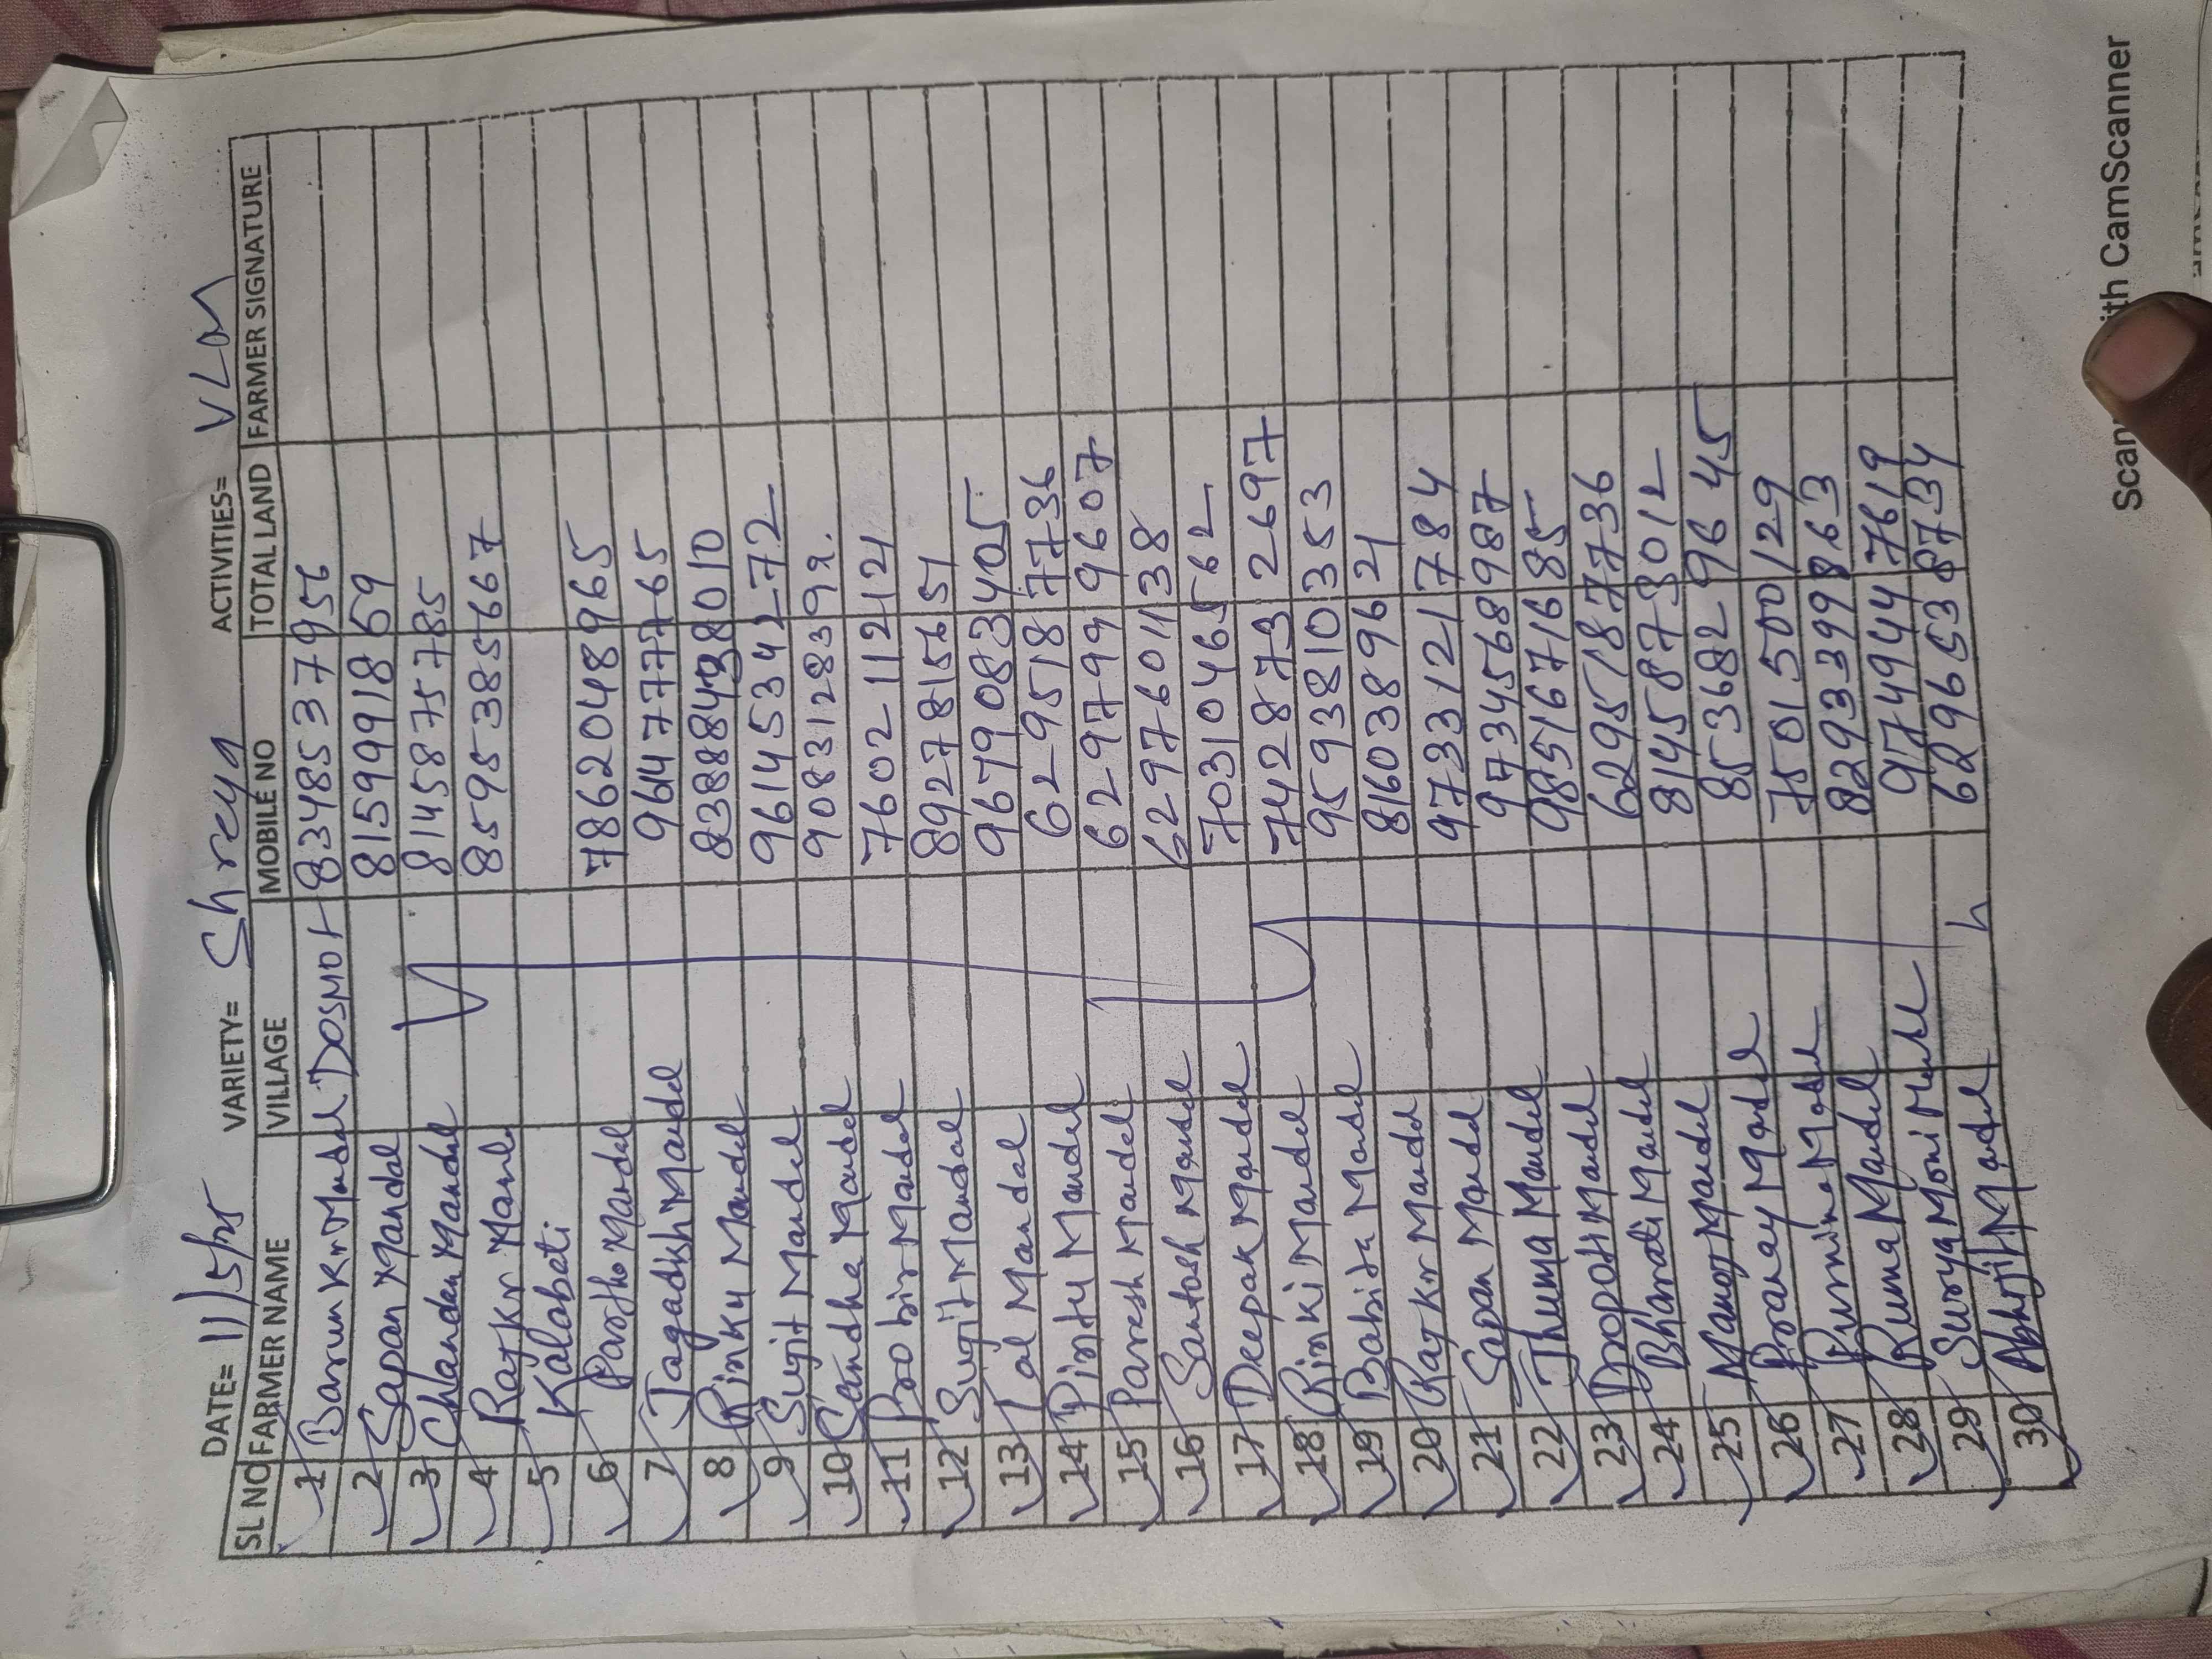 DATE= 11/5/25 VARIETY= Shreya ACTIVITIES= VLM
SL NO FARMER NAME VILLAGE MOBILE NO TOTAL LAND FARMER SIGNATURE
1 Barun Kr Mandal DOSMOL 8348537956
2 Sapan Mandal 8159991869
3 Chandan Mandal 8145875785
4 Raj Kr 8595385667
5 Kalabati
6 Partho Mandal 7862048965
7 Jagadish Mandal 9647777765
8 Rinku Mandal 8010
9 Sujit Mandal
10 Sandha Mandal
11 Probir Mandal 7602112121
12 Sujit Mandal 8927815651
13 Lal Mandal 9679083405
14 Pintu Mandal 6295187736
15 Paresh Mandal 6297999607
16 Santosh Mandal 6297601138
17 Deepak Mandal 7031046562
18 Rinki Mandal 7428732697
19 Babita Mandal 9593810353
20 Raj Kr Mandal 8160389621
21 Sapan Mandal 9733121784
22 Jhuma Mandal 9734568987
23 Dropoti Mandal 9851671685
24 Bharati Mandal 6295187736
25 Manoj Mandal 8145873012
26 Pranay Mandal 8536829645
27 Purnima Mandal 7501500129
28 Ruma Mandal 8293399863
29 Surya Moni 9749447619
30 Abhijit Mandal 6296538734
Scan ith CamScanner